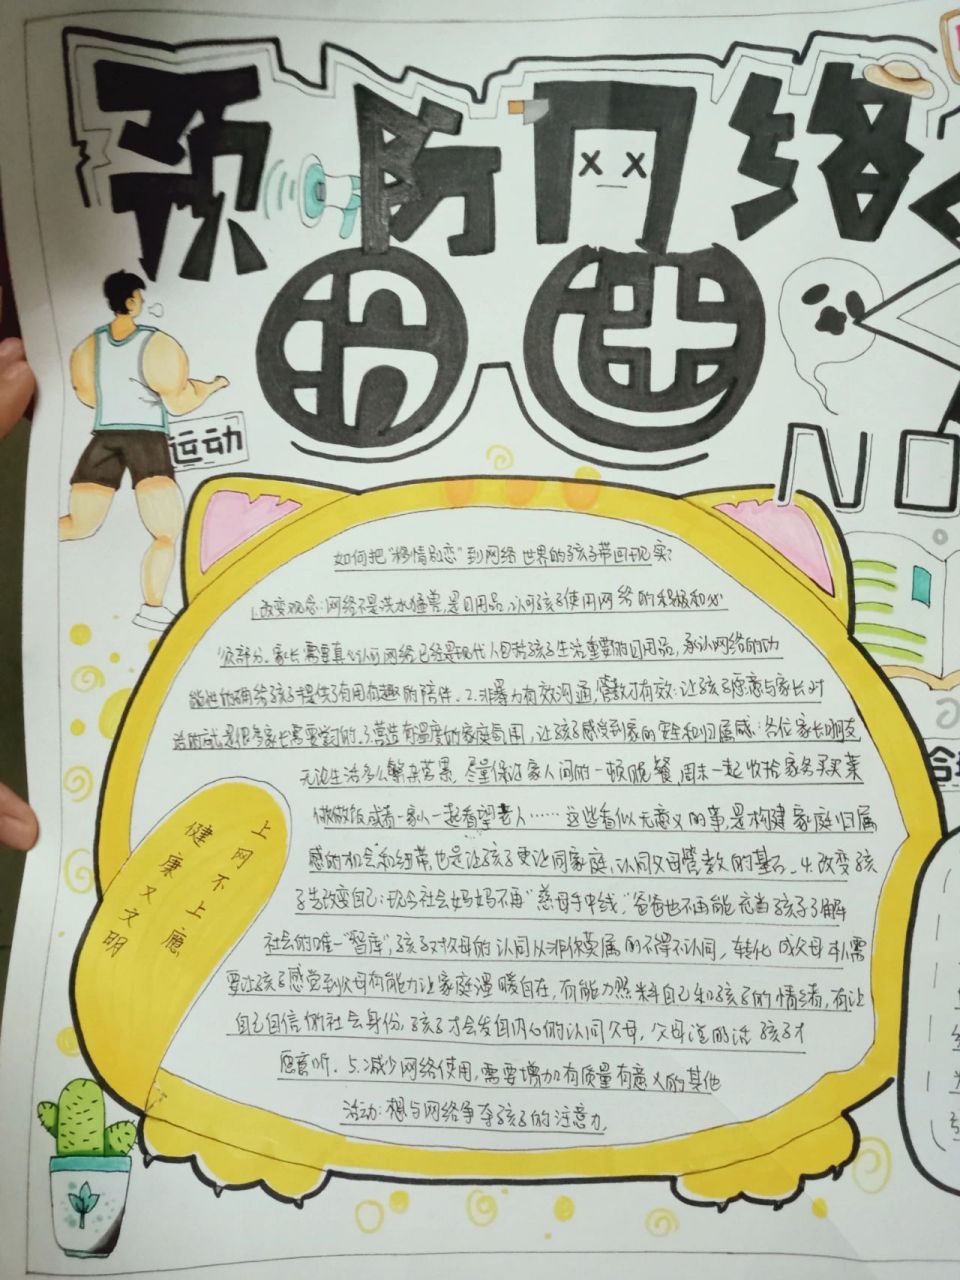 预防网络
沉迷
运动
NO
如何把"移情别恋"到网络世界的孩子带回现实?
1.改变观念:网络不是洪水猛兽,是日用品,认可孩子使用网络的积极和必
须部分。家长需要真心认可网络已经是现代人包括孩子生活重要的日用品,承认网络的功
能性的确给孩子提供了有用有趣的陪伴。2.非暴力有效沟通,管教才有效:让孩子愿意与家长对
话的就是很多家长需要学习的。3.营造有温度的家庭氛围,让孩子感受到家的安全和归属感:各位家长朋友
无论生活多么繁杂劳累,尽量保证家人间的一顿晚餐,周末一起收拾家务买买菜
做做饭或者一家人一起看望老人……这些看似无意义的事是构建家庭归属
感的机会和纽带,也是让孩子更认同家庭,认同父母管教的基石。4.改变孩
子先改变自己:现今社会妈妈不再"慈母手中线,"爸爸也不再能充当孩子了解
社会的唯一"智库",孩子对父母的认同从非你莫属的不得不认同,转化成父母
要让孩子感觉到父母有能力让家庭温暖自在,有能力照料自己和孩子的情绪,有让
自己自信的社会身份,孩子才会发自内心的认同父母,父母说的话孩子才
愿意听。5.减少网络使用,需要增加有质量有意义的其他
活动:想与网络争夺孩子的注意力,
上网不上瘾
健康又文明